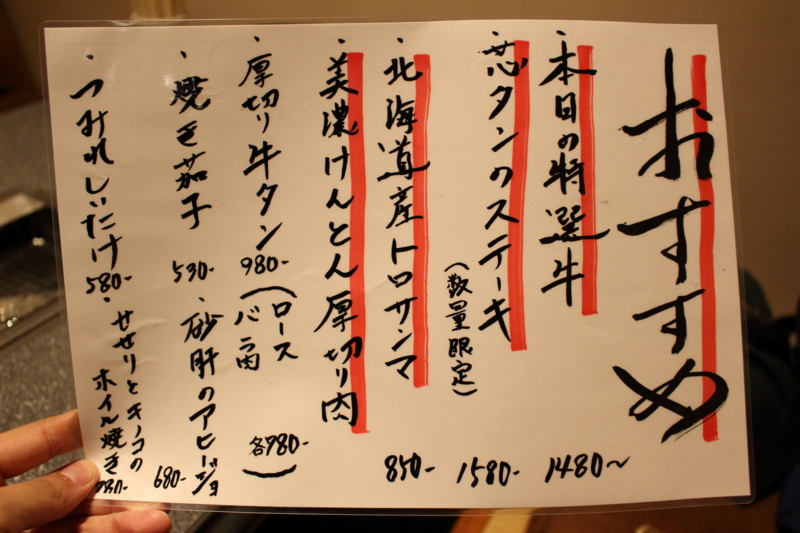 おすすめ
・本日の特選牛 1480〜
・芯タンのステーキ (数量限定) 1580-
・北海道産トロサンマ 850-
・美濃けんとん厚切り肉
(ロース
バラ肉 各980-)
・厚切り牛タン 980-
・焼き茄子 530-
・砂肝のアヒージョ 680-
・つみれしいたけ 580-
・せせりとキノコの
ホイル焼き